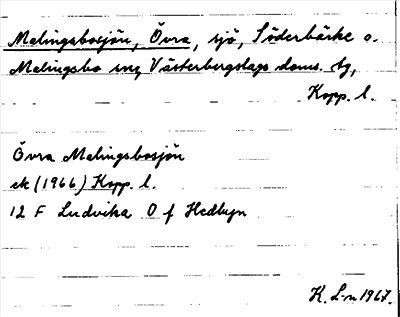 Malingsbosjön, Övra, sjö, Söderbärke o.
Malingsbo snr, Västerbergslags doms. tg,
Kopp. l.
Övra Malingsbosjön
ek (1966) Kopp. l.
12 F Ludvika O f Hedbyn
K. L-n 1967.